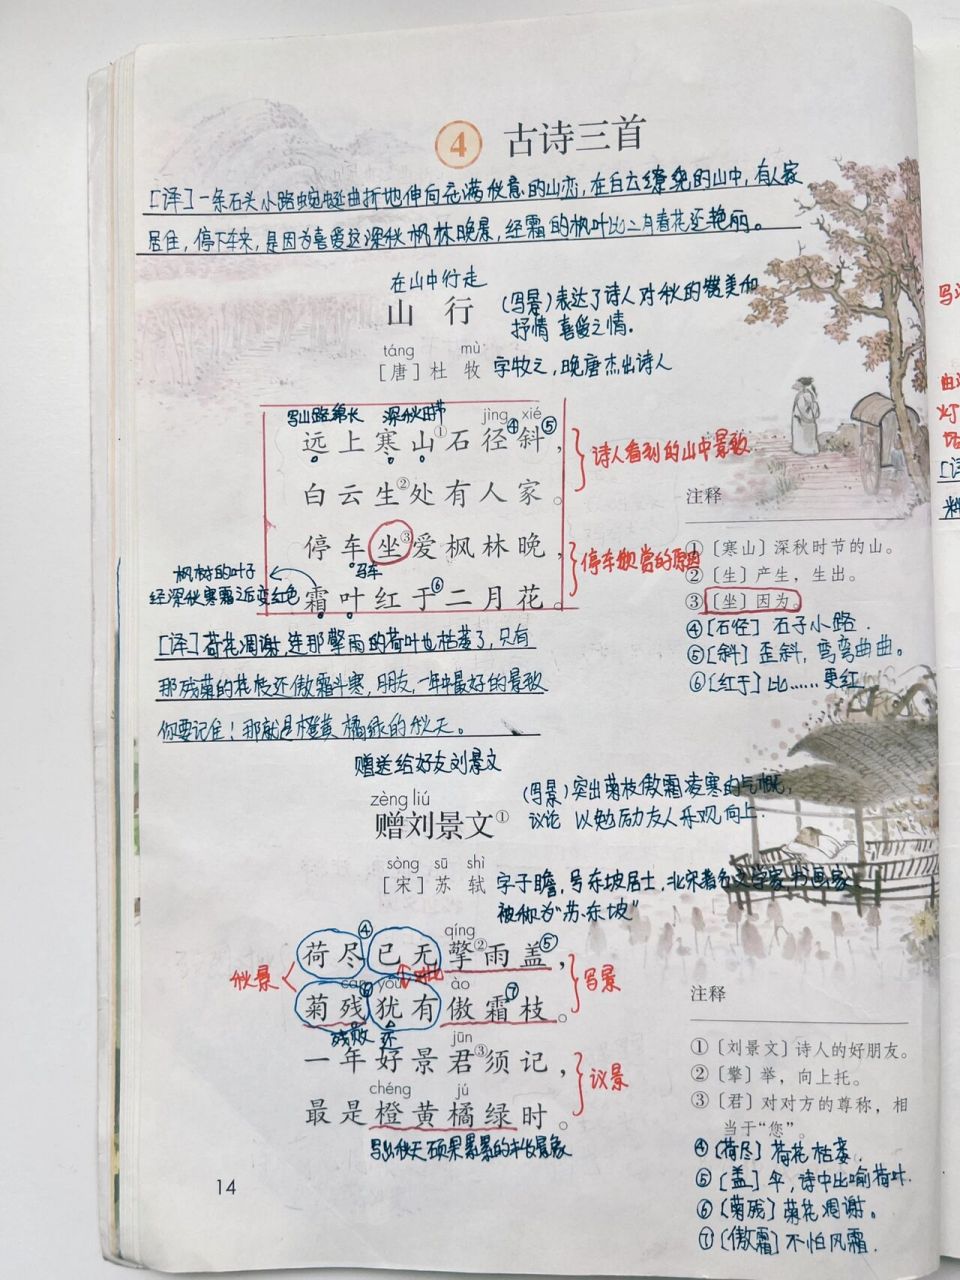 4 古诗三首
[译]一条石头小路蜿蜒曲折地伸向充满秋意的山峦,在白云缭绕的山中,有人家
居住,停下车来,是因为喜爱这深秋枫林晚景,经霜的枫叶比二月春花还艳丽。
在山中行走
山 行
(写景)表达了诗人对秋的赞美和
抒情 喜爱之情.
táng mù
[唐]杜 牧 字牧之,晚唐杰出诗人
写山路绵长 深秋时节 jìng xié
远上寒山①石径④斜⑤,
诗人看到的山中景致
白云生②处有人家。
停车坐③爱枫林晚,
停车观赏的原因
马车
霜叶红于⑥二月花。
枫树的叶子
经深秋寒霜之后变红色
注释
①〔寒山〕深秋时节的山。
②〔生〕产生,生出。
③〔坐〕因为。
④[石径] 石子小路.
⑤[斜] 歪斜,弯弯曲曲。
⑥[红于] 比……更红
[译]荷花凋谢,连那擎雨的荷叶也枯萎了,只有
那残菊的花枝还傲霜斗寒,朋友,一年中最好的景致
你要记住!那就是橙黄橘绿的秋天。
赠送给好友刘景文
zèng liú
赠刘景文①
(写景)突出菊枝傲霜凌寒的气概,
议论 以勉励友人乐观向上.
sòng sū shì
[宋]苏 轼 字子瞻,号东坡居士,北宋著名文学家,书画家,
被称为“苏东坡”
qíng
荷尽④已无擎②雨盖⑤,
秋景
对比
写景
yóu ào
菊残⑥犹有傲霜⑦枝。
残败 还
jūn
一年好景君③须记,
议景
chéng jú
最是橙黄橘绿时。
写出秋天硕果累累的丰收景象
注释
①〔刘景文〕诗人的好朋友。
②〔擎〕举,向上托。
③〔君〕对对方的尊称,相
当于“您”。
④[荷尽] 荷花枯萎.
⑤[盖] 伞,诗中比喻荷叶.
⑥[菊残] 菊花凋谢。
⑦[傲霜] 不怕风霜.
14